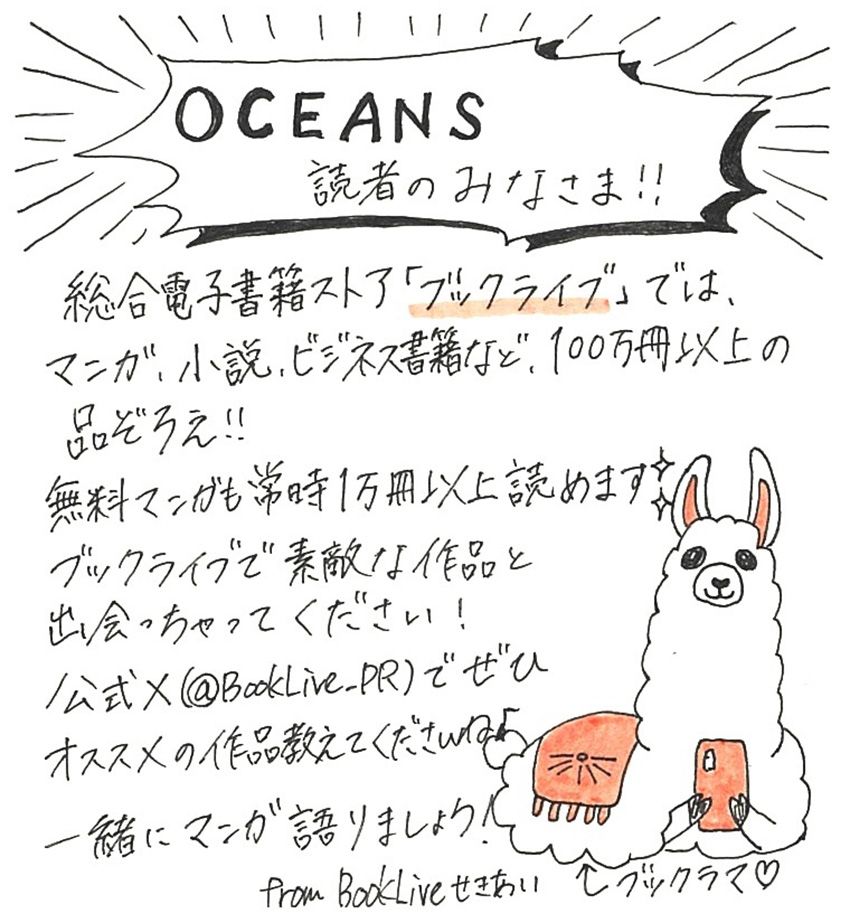 OCEANS
読者のみなさま!!
総合電子書籍ストア「ブックライブ」では、
マンガ、小説、ビジネス書籍など、100万冊以上の
品ぞろえ!!
無料マンガも常時1万冊以上読めます
ブックライブで素敵な作品と
出会っちゃってください!
公式X(@BookLive_PR)でぜひ
オススメの作品教えてくださいね♪
一緒にマンガ語りましょう!
from BookLive せきあい
↑ブックラマ♡